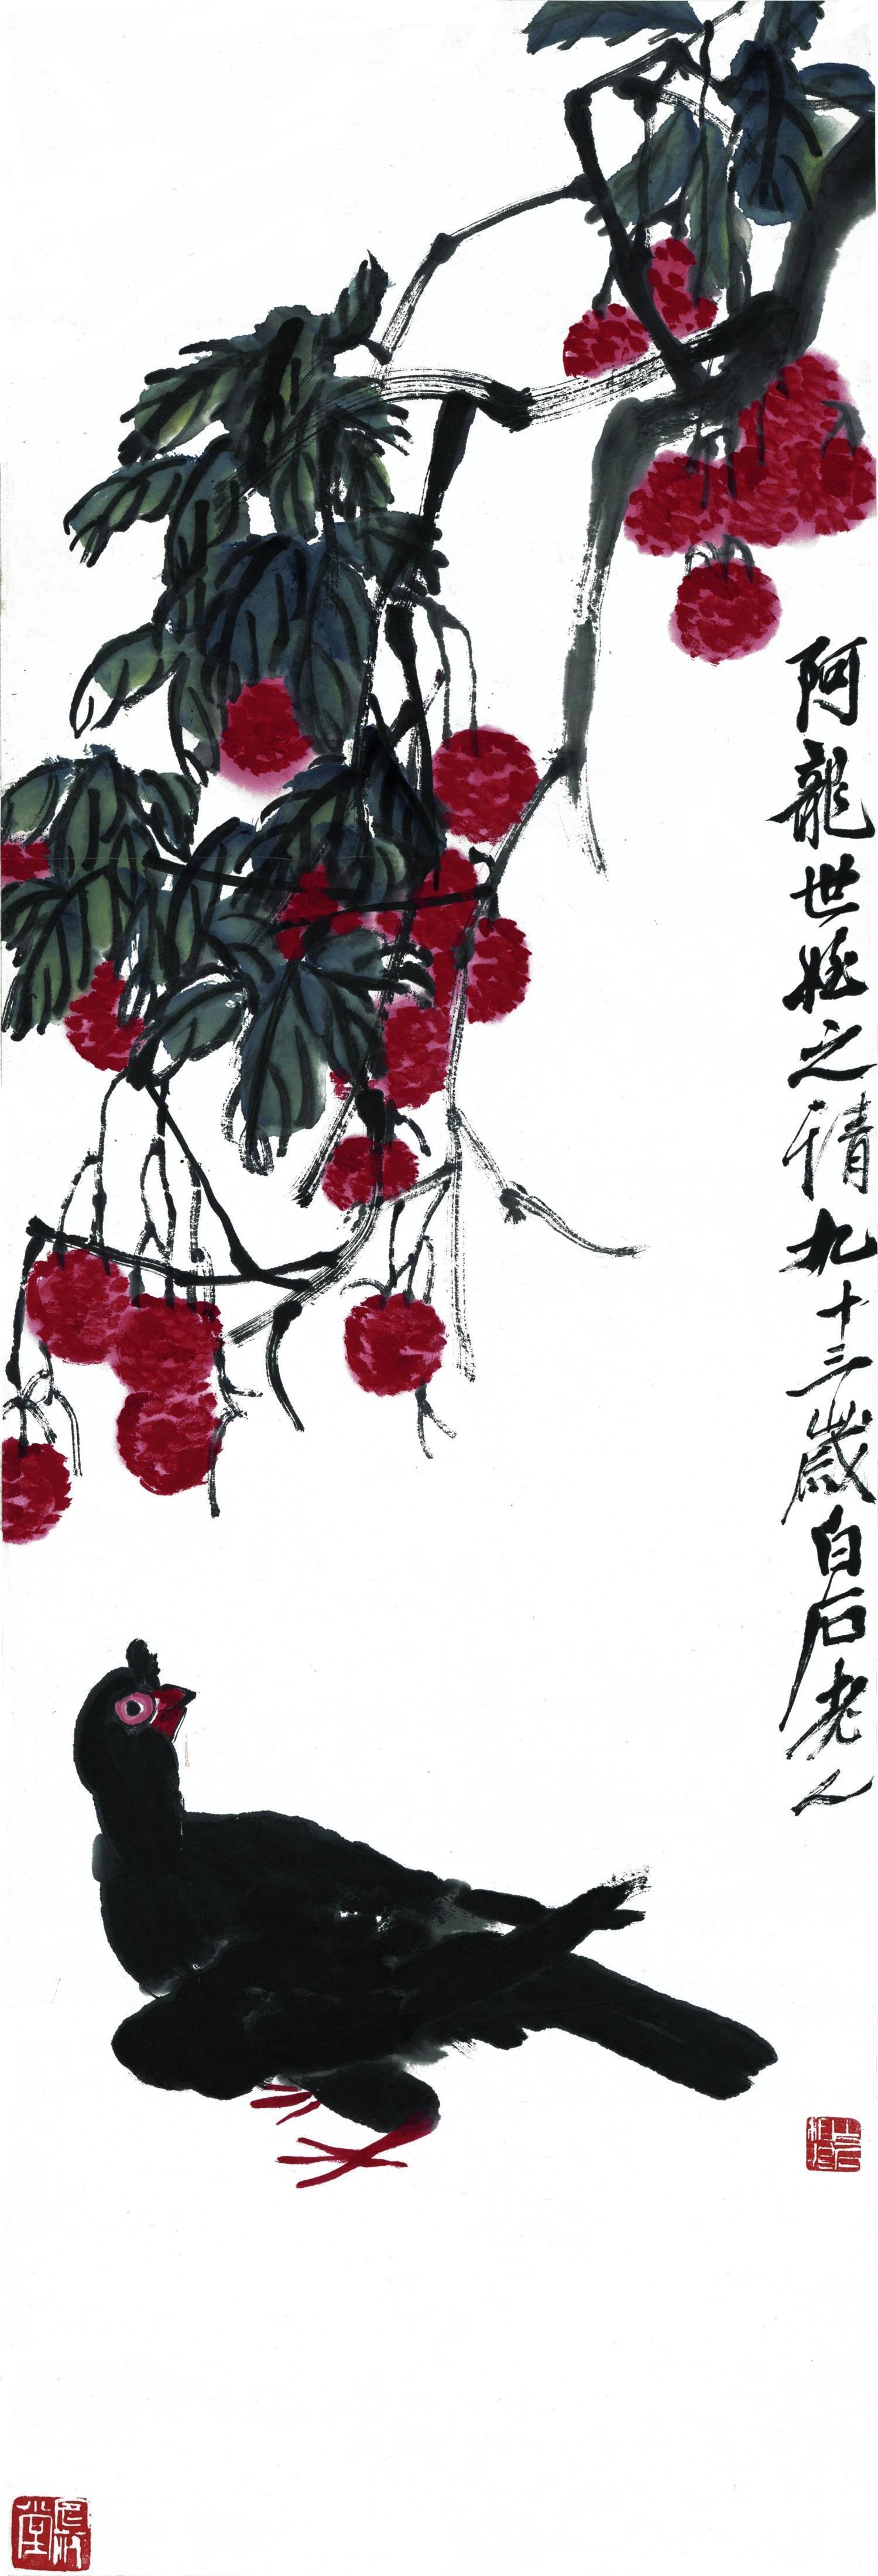 阿龍世姪之情九十三歲白石老人